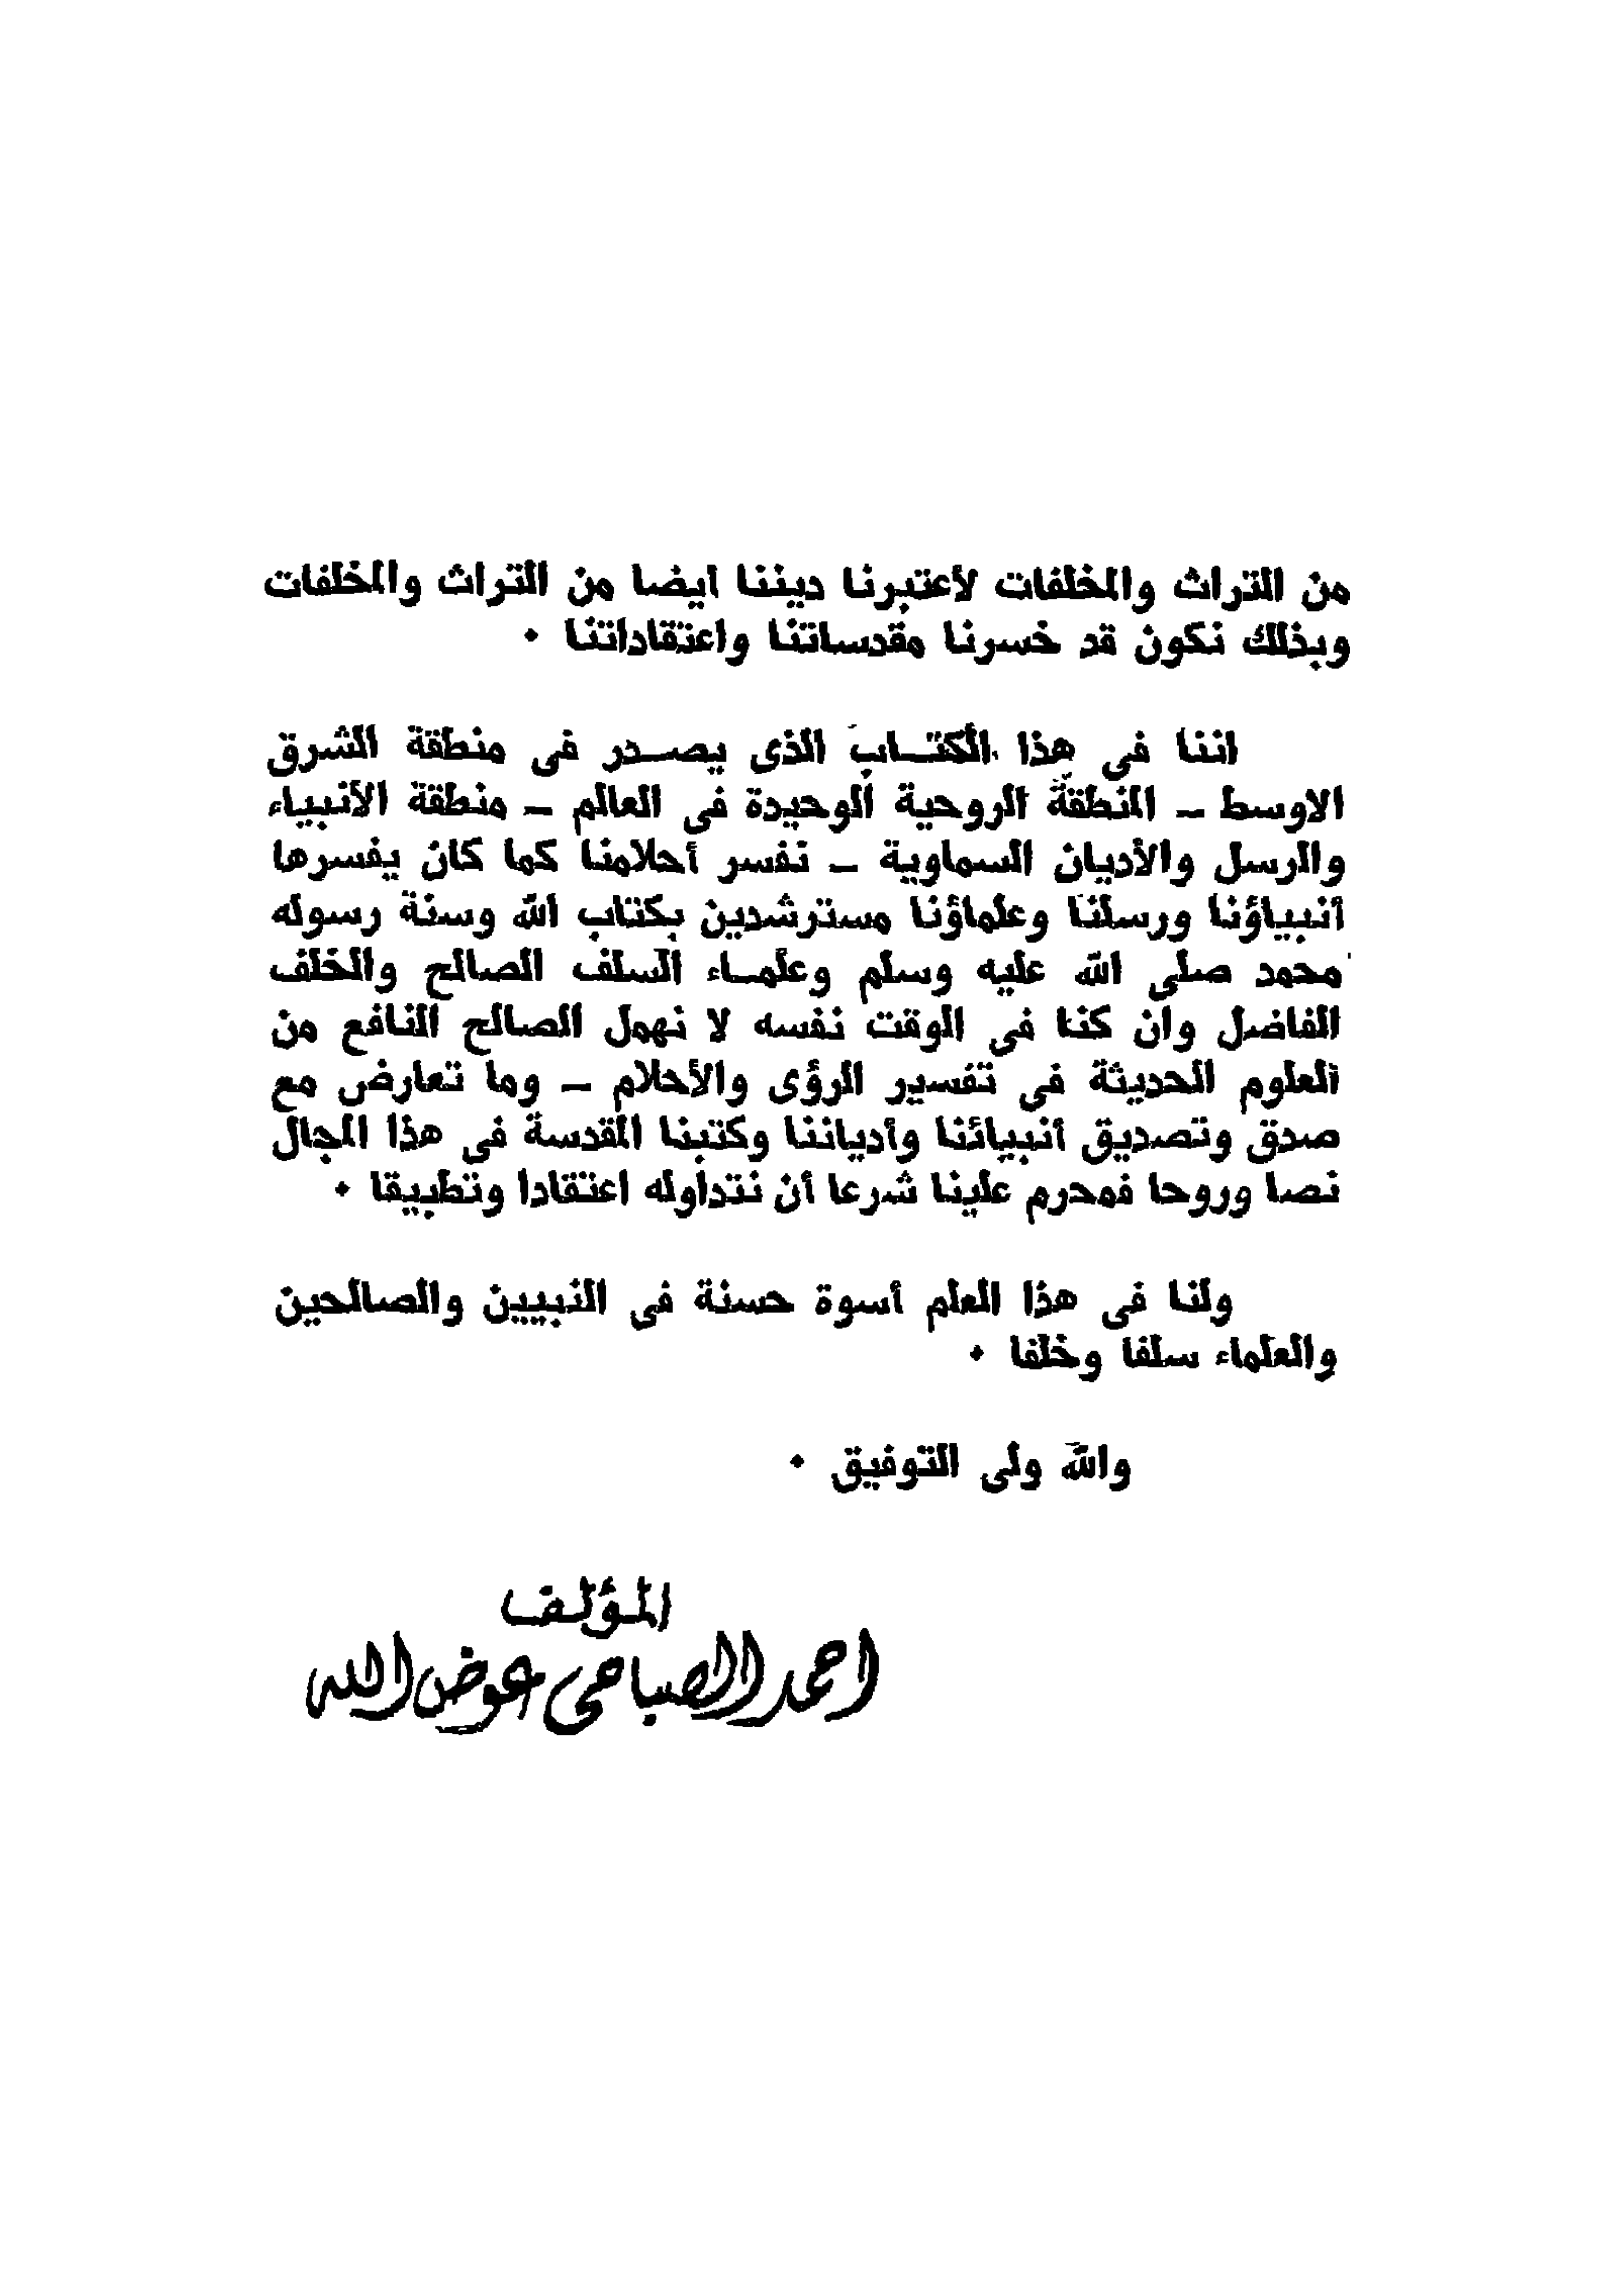 من التراث والمخلفات لأعتبرنا ديننا ايضا من التراث والمخلفات
وبذلك نكون قد خسرنا مقدساتنا واعتقاداتنا ٠
اننا فى هذا الكتــاب الذى يصــدر فى منطقة الشرق
الاوسط ـ المنطقة الروحية الوحيدة فى العالم ـ منطقة الأنبياء
والرسل والأديان السماوية ـ نفسر أحلامنا كما كان يفسرها
أنبياؤنا ورسلنا وعلماؤنا مسترشدين بكتاب الله وسنة رسوله
محمد صلى الله عليه وسلم وعلمــاء السلف الصالح والخلف
الفاضل وان كنا فى الوقت نفسه لا نهمل الصالح النافع من
العلوم الحديثة فى تفسير الرؤى والأحلام ـ وما تعارض مع
صدق وتصديق أنبيائنا وأدياننا وكتبنا المقدسة فى هذا المجال
نصا وروحا فمحرم علينا شرعا أن نتداوله اعتقادا وتطبيقا ٠
ولنا فى هذا العلم أسوة حسنة فى النبيين والصالحين
والعلماء سلفا وخلفا ٠
والله ولى التوفيق ٠
المؤلف
احمد الصباحى عوض الله